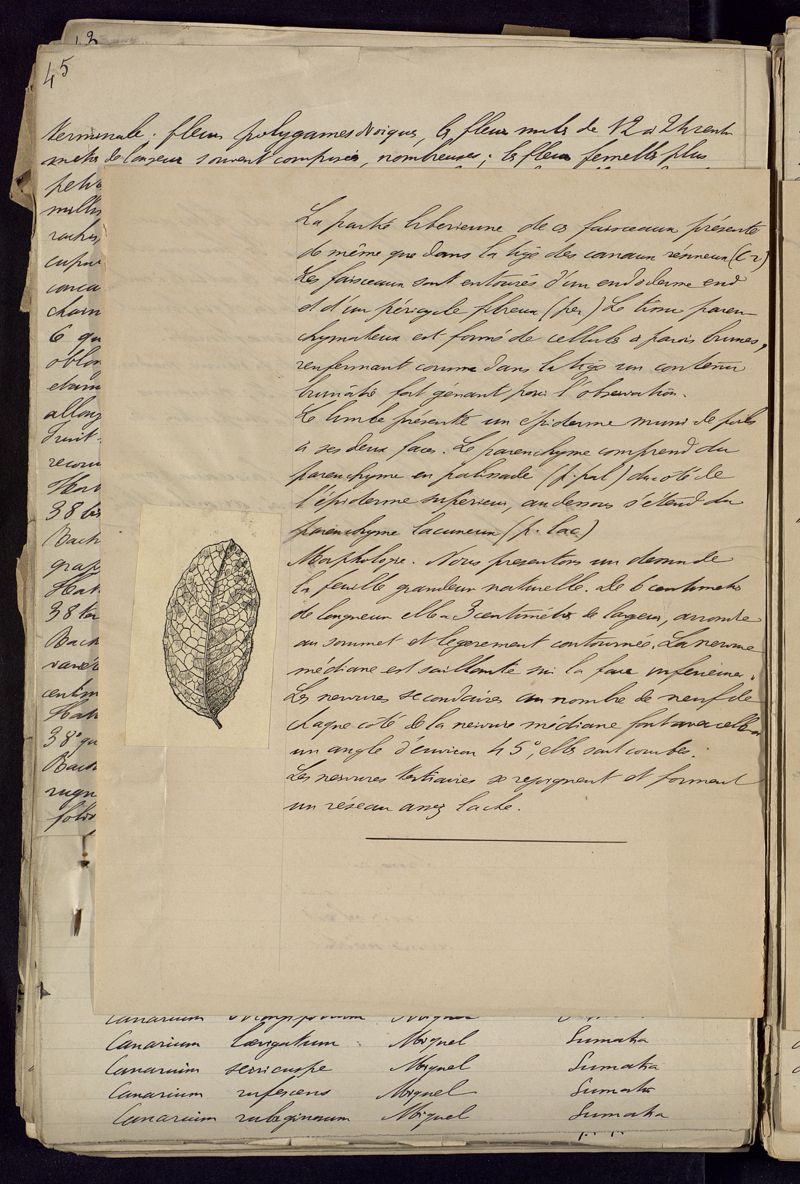 45
terminale. fleurs polygames dioiques, les fleurs males de 12 à 24 centi
mètres de longueur souvent composées, nombreuses; les fleurs femelles plus
La partie libérienne de ces faisceaux présente
de même que dans la tige des canaux résineux (Cr)
Les faisceaux sont entourés d'un endoderme end
et d'un péricycle fibreux (per) Le tissu paren-
chymateux est formé de cellules à parois brunes,
renfermant comme dans la tige un contenu
brunâtre fort gênant pour l'observation.
Le limbe présente un épiderme muni de poils
à ses deux faces. Le parenchyme comprend du
parenchyme en palissade (p. pal) du côté de
l'épiderme supérieur, au dessous s'étend du
parenchyme lacuneux (p. lac)
Morphologie. Nous présentons un dessin de
la feuille grandeur naturelle. De 6 centimètres
de longueur elle a 3 centimètres de largeur, arrondie
au sommet et légèrement contournée. La nervure
médiane est saillante sur la face inférieure.
Les nervures secondaires au nombre de neuf de
chaque côté de la nervure médiane font avec celle
un angle d'environ 45°, elles sont courbes.
Les nervures tertiaires se rejoignent et forment
un réseau assez lache.
Canarium Miquel
Canarium lævigatum Miquel Sumatra
Canarium sericuspe Miquel Sumatra
Canarium rufescens Miquel Sumatra
Canarium rubiginosum Miquel Sumatra